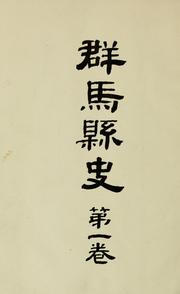 群馬縣史
第一卷